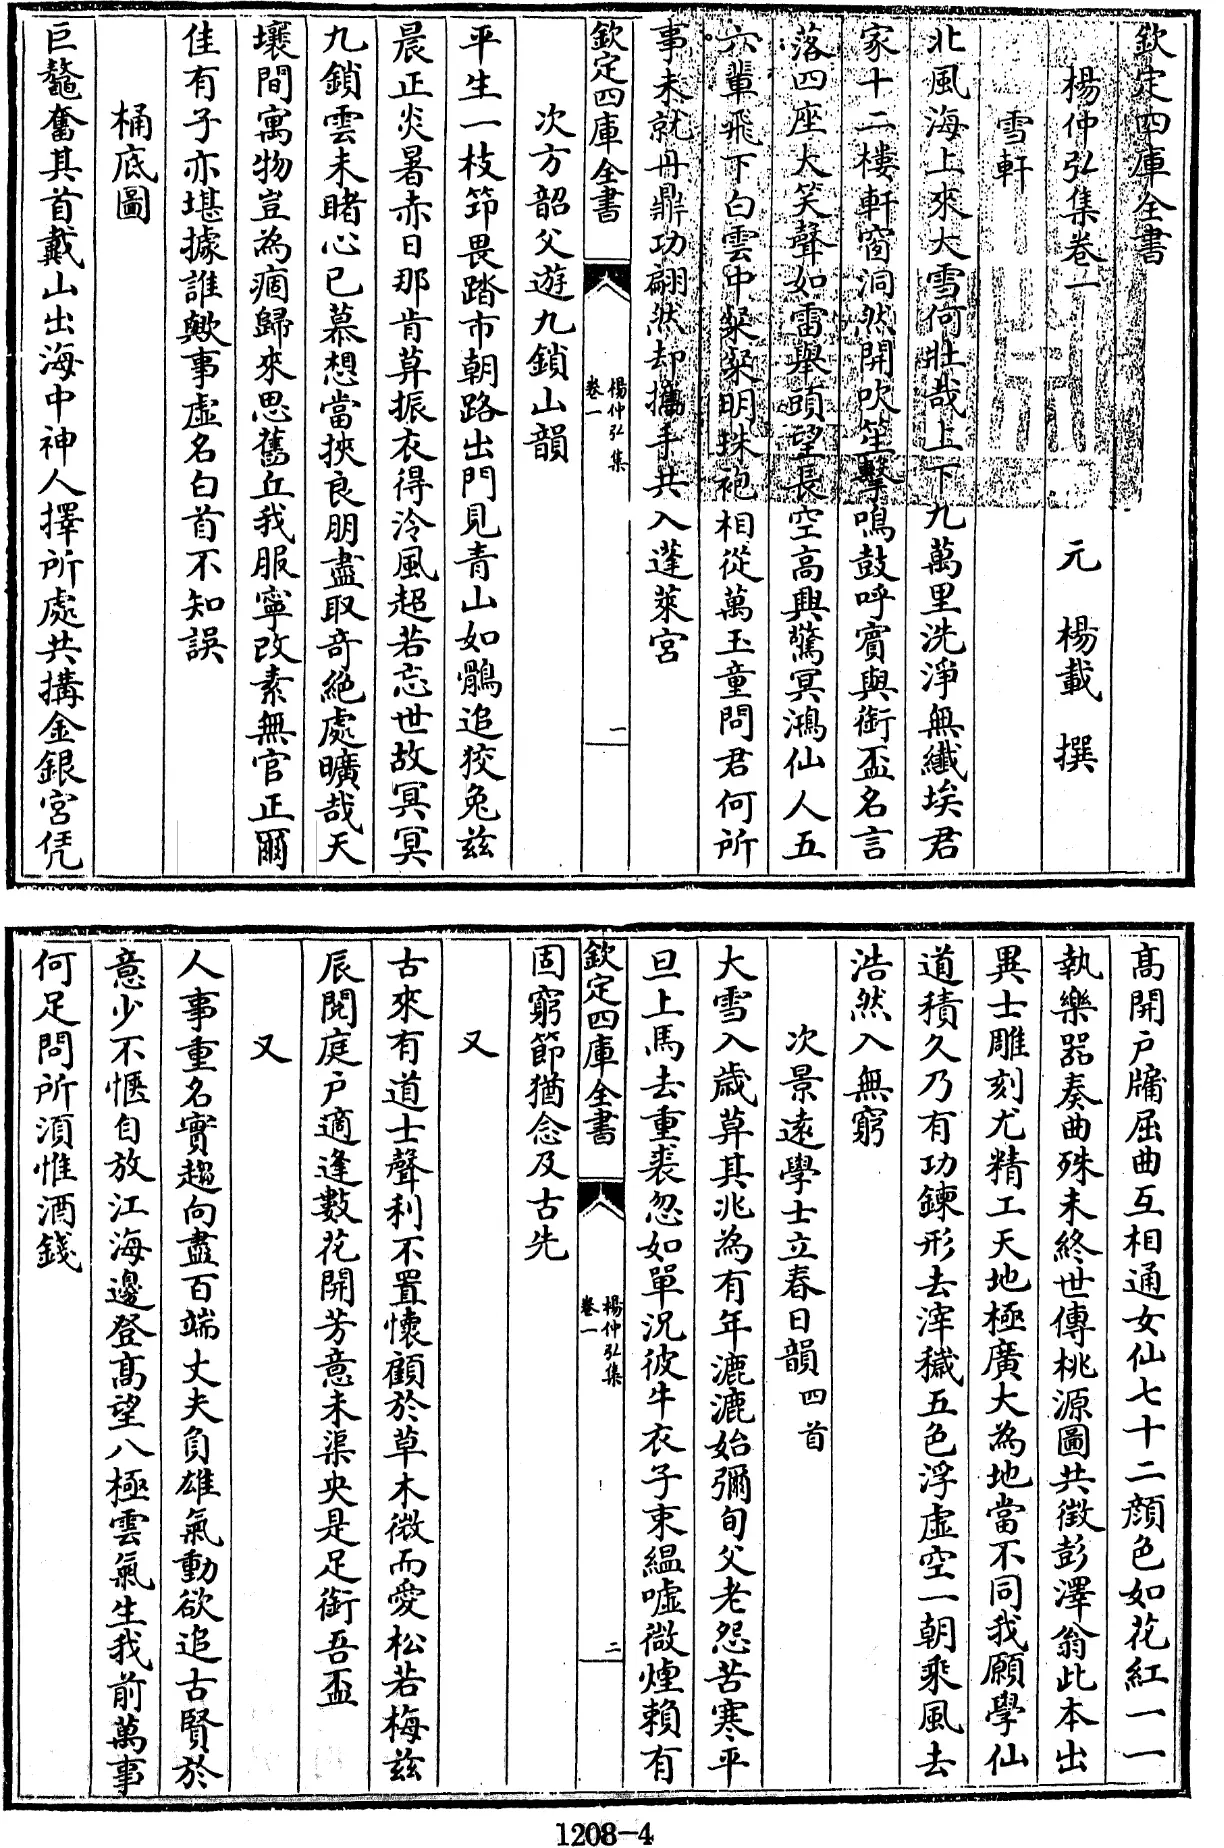 欽定四庫全書
楊仲弘集卷一
元　楊載　撰
雪軒
北風海上來大雪何壯哉上下九萬里洗淨無纖埃君
家十二樓軒窗洞然開吹笙擊鳴鼓呼賓與銜盃名言
落四座大笑聲如雷舉頭望長空高興驚冥鴻仙人五
六輩飛下白雲中粲粲明珠袍相從萬玉童問君何所
事未就丹鼎功翩然却攜手共入蓬萊宮
欽定四庫全書
楊仲弘集
卷一
一
次方韶父遊九鎖山韻
平生一枝笻畏踏市朝路出門見青山如鶻追狡兔兹
晨正炎暑赤日那肯算振衣得泠風超若忘世故冥冥
九鎖雲未睹心已慕想當挾良朋盡取奇絶處曠哉天
壤間寓物豈為痼歸來思舊丘我服寧改素無官正爾
佳有子亦堪據誰歟事虛名白首不知誤
桶底圖
巨鼇奮其首戴山出海中神人擇所處共搆金銀宮凭
高開户牖屈曲互相通女仙七十二顔色如花紅一一
執樂器奏曲殊未終世傳桃源圖共徵彭澤翁此本出
異士雕刻尤精工天地極廣大為地當不同我願學仙
道積久乃有功鍊形去滓穢五色浮虛空一朝乘風去
浩然入無窮
次景遠學士立春日韻四首
大雪入歲算其兆為有年漉漉始彌旬父老怨苦寒平
旦上馬去重裘忽如單況彼牛衣子束緼嘘微煙賴有
欽定四庫全書
楊仲弘集
卷一
二
固窮節猶念及古先
又
古來有道士聲利不置懷顧於草木微而愛松若梅兹
辰閱庭户適逢數花開芳意未渠央是足銜吾盃
又
人事重名實趨向盡百端丈夫負雄氣動欲追古賢於
意少不愜自放江海邊登高望八極雲氣生我前萬事
何足問所須惟酒錢
1208-4